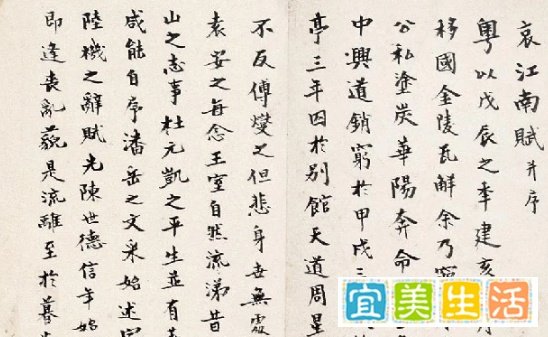 哀江南賦并序
粵以戊辰之年建亥
移國金陵瓦解余乃竄
公私塗炭華陽奔命
中興道銷窮於甲戌三
亭三年囚於別館天道周星
不反傅燮之但悲身世無處
袁安之每念王室自然流涕昔
山之志事杜元凱之平生並有
咸能自序潘岳之文采始述家
陸機之辭賦先陳世德信年始
即逢喪亂藐是流離至於暮
宜美生活